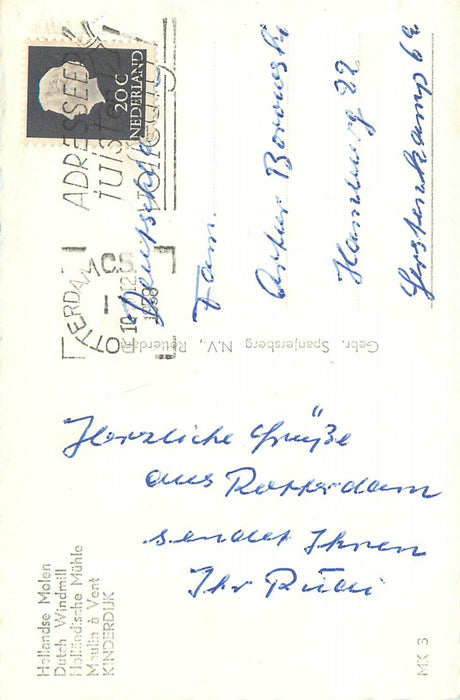 NEDERLAND
20 C
ADRESSEER
juist en
volledig
ROTTERDAM CS
1958
Deutschland
Fam.
Artur Borowski
Hamburg 22
Gerstenkamp 6a
Gebr. Spanjersberg N.V., Rotterdam
Herzliche Grüße
aus Rotterdam
sendet Ihnen
Ihr Rudi
Hollandse Molen
Dutch Windmill
Holländische Mühle
Moulin à Vent
KINDERDIJK
MK 3